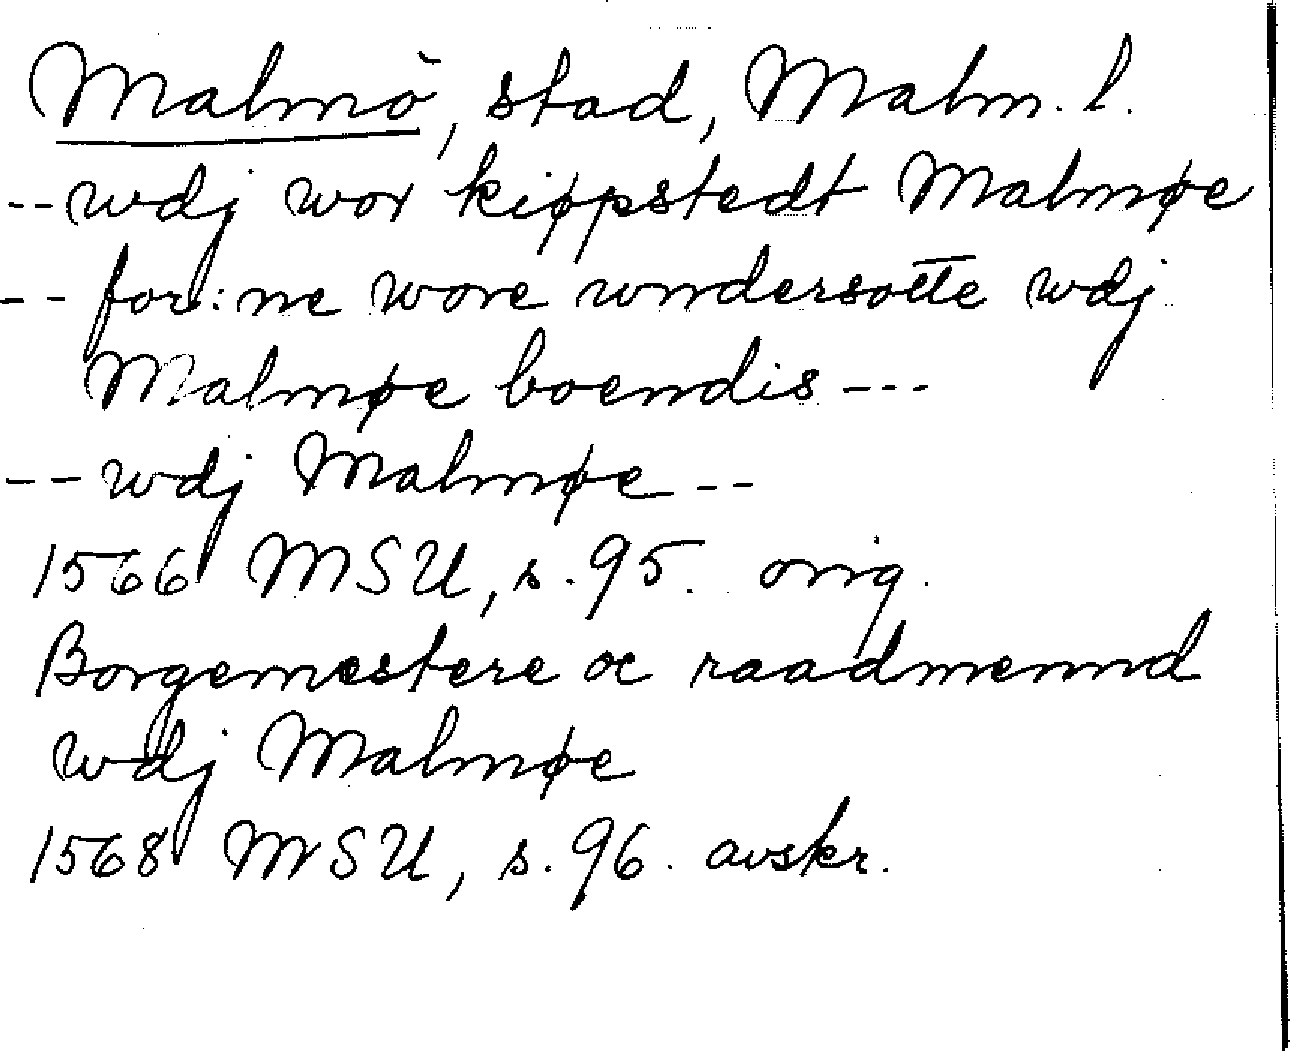 Malmö, stad, Malm. l.
-- wdj wor kiøpstedt Malmøe
-- for:ne wore wndersotte wdj
Malmøe boendis ---
-- wdj Malmøe --
1566 MSU, s. 95. orig.
Borgemestere oc raadmennd
wdj Malmøe
1568 MSU, s. 96. avskr.